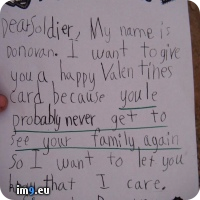 DearSoldier, My name is
Donovan. I want to give
you a happy Valentines
card because youle
probably never get to
see your family again
So I want to let you
that I care.
img9.eu